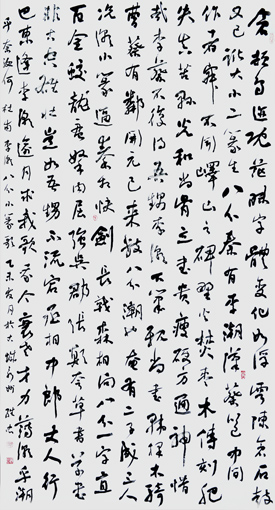 倉頡鳥跡既茫昧字體變化如浮雲陳倉石鼓
又已訛大小二篆生八分秦有李漢蔡邕中間
作者寂不聞嶧山之碑野火焚棗木傳刻肥
失真苦縣光和尚骨立書貴瘦硬方通神惜
哉李蔡不復得吾甥李潮下筆親尚書韓擇木騎
曹蔡有鄰開元已來數八分潮也奄有二子成三人
況潮小篆逼秦相快劍長戟森相向八分一字直
百金蛟龍盤拏肉屈強吳郡張顛夸草書草書
非古空雄壯豈如吾甥不流宕丞相中郎丈人行
巴東逢李潮逾月求我歌我今衰老才力薄潮乎潮
乎奈汝何 杜甫李潮八分小篆歌 乙未 月於